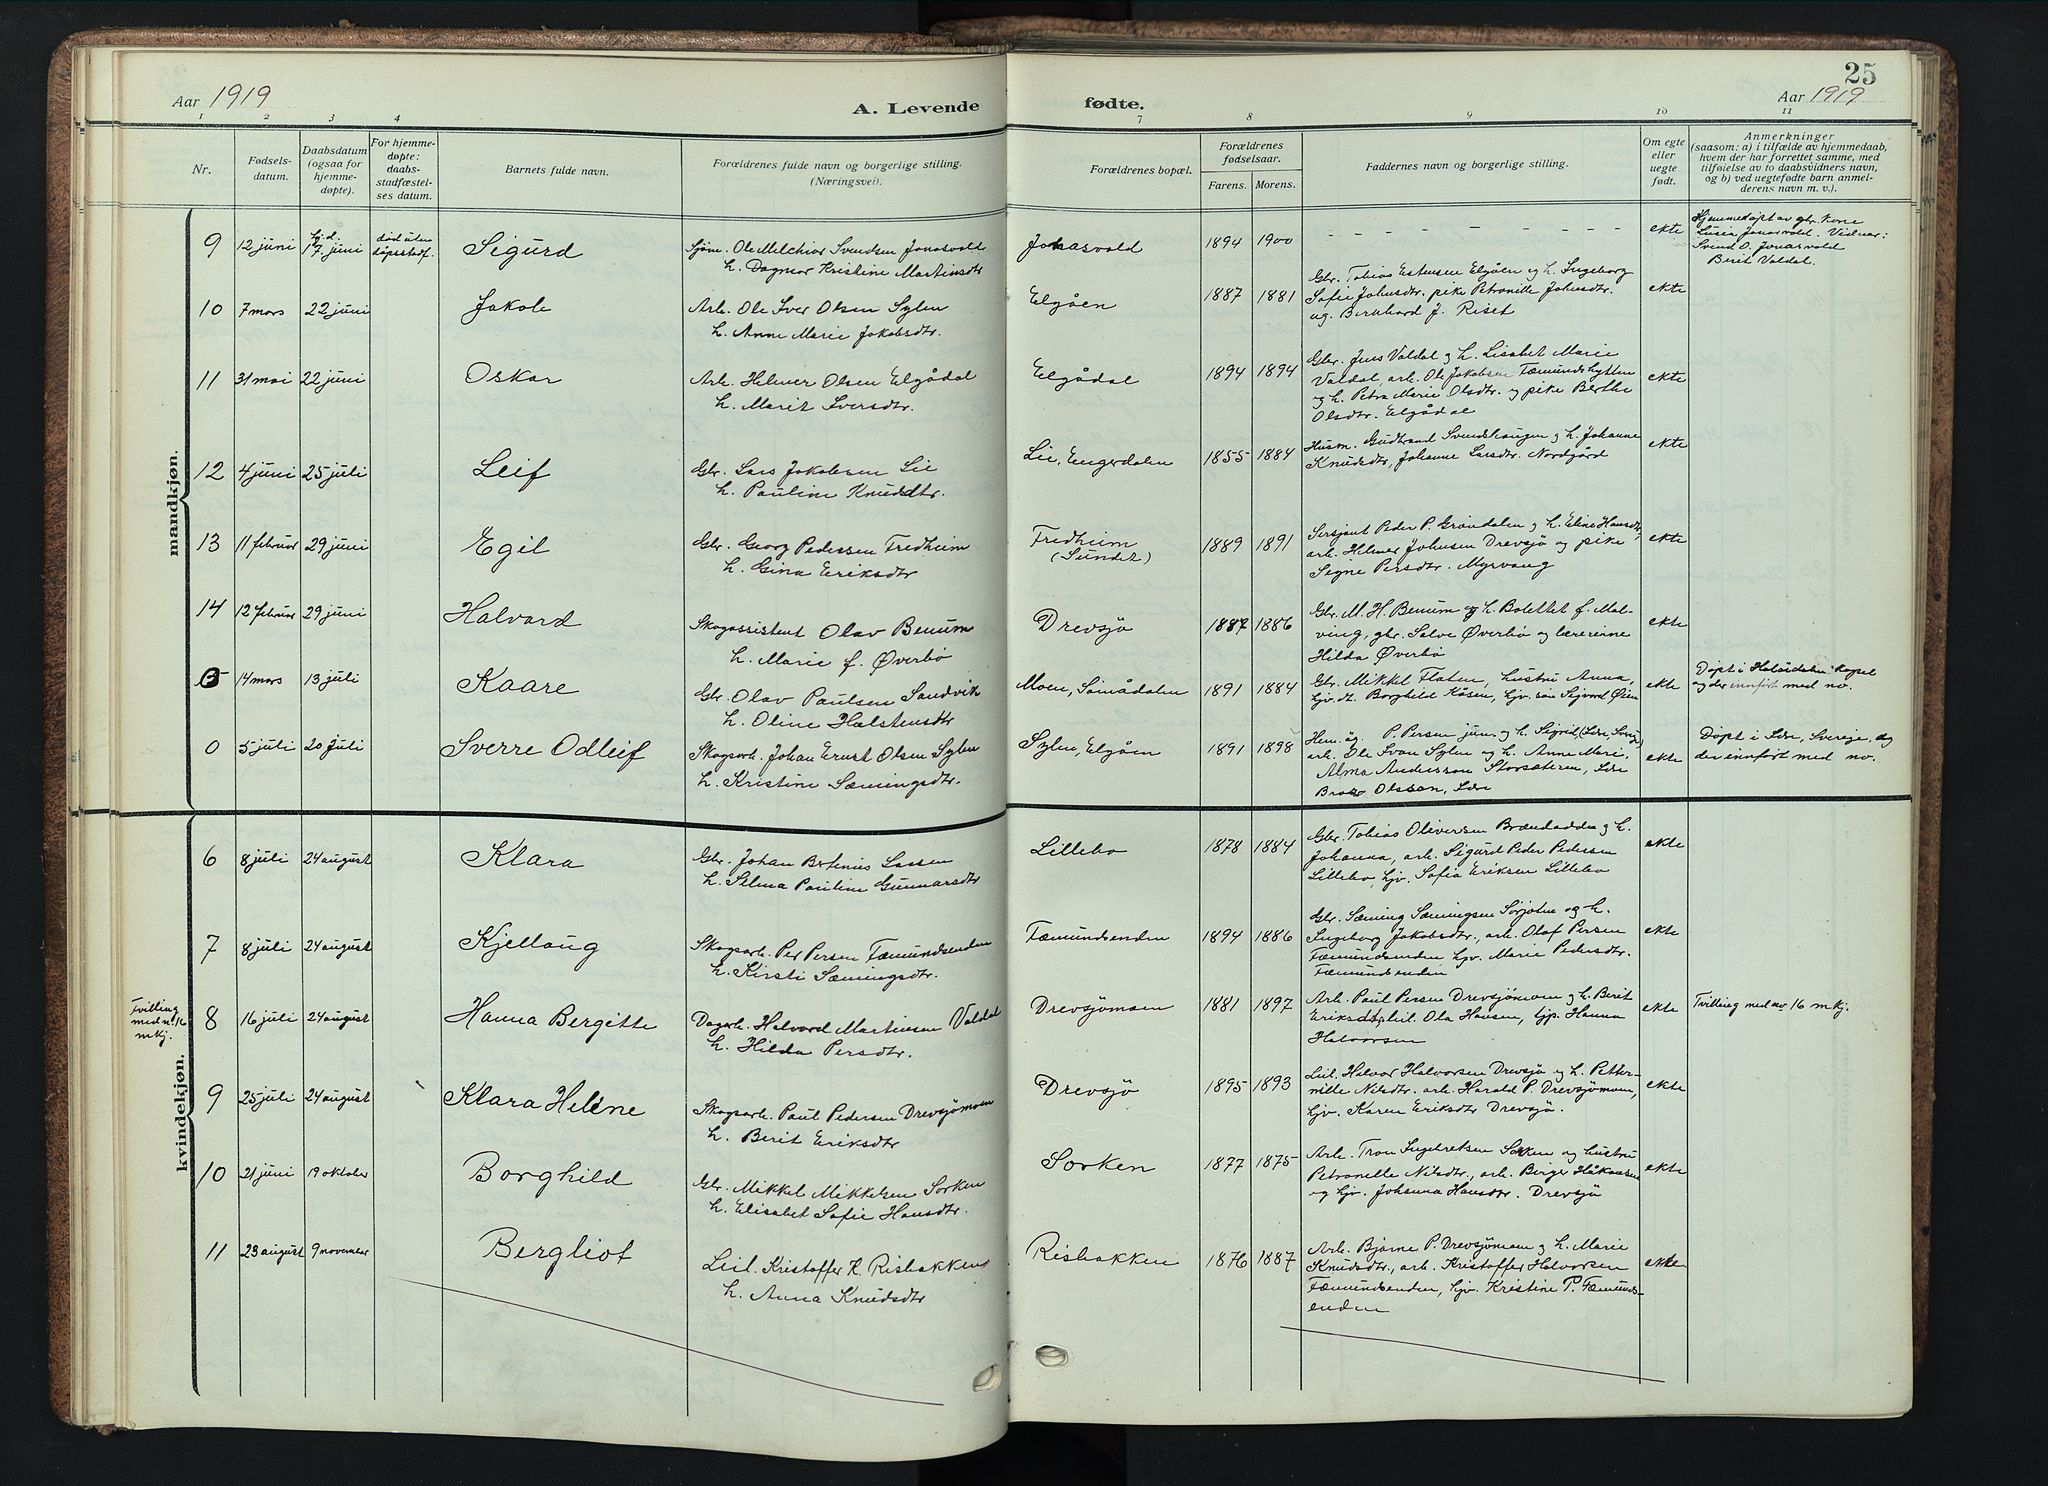 Aar 1919
A. Levende
1 2 3 4
Nr.
Fødsels-
datum.
Daabsdatum
(ogsaa for
hjemme-
døpte).
For hjemme-
døpte:
daabs-
stadfæstel-
ses datum.
Barnets fulde navn.
Forældrenes fulde navn og borgerlige stilling.
(Næringsvei).
mandkjøn.
9 12 juni hj.d. 17 juni død uten døpsstadf. Sigurd
Sjøm. Ole Melchior Svendsen Jonasvold
h. Dagmar Kristine Martinsdtr
10 7 mars 22 juni Jakob
Arb. Ole Iver Olsen Sylen
h. Anne Marie Jakobsdtr.
11 31 mai 22 juni Oskar
Arb. Helmer Olsen Elgådal
h. Marit Iversdtr.
12 4 juni 25 juli Leif
Gbr. Lars Jakobsen Lie
h. Pauline Knudsdtr.
13 11 februar 29 juni Egil
Gbr. Georg Pedersen Fredheim
h. Gina Eriksdtr
14 12 februar 29 juni Halvard
Skogassistent Olav Benum
h. Marie f. Øverbø
14 mars 13 juli Kaare
Gbr. Olav Paulsen Sandvik
h. Oline Halstensdtr
0 5 juli 20 juli Sverre Odleif
Skogsarb. Johan Ernst Olsen Sylen
h. Kristine Sæmingsdtr.
kvindekjøn.
6 8 juli 24 august Klara
Gbr. Johan Bertinius Lassen
h. Selma Pauline Gunnarsdtr
7 8 juli 24 august Kjellaug
Skogsarb. Per Persen Fæmundsenden
h. Kirsti Sæmingsdtr.
Tvilling
med nr. 16
mkj.
8 16 juli 24 august Hanna Bergitte
Dagarb. Halvard Martinsen Valdal
h. Hilda Persdtr.
9 25 juli 24 august Klara Helene
Skogsarb. Paul Pedersen Drevsjømoen
h. Berit Eriksdtr
10 21 juni 19 oktober Borghild
Gbr. Mikkel Mikkelsen Sorken
h. Elisabet Sofie Hansdtr.
11 23 august 9 november Bergliot
Leil. Kristoffer K. Risbakken
h. Anna Knudsdtr
25
fødte.
Aar 1919
7 8 9 10 11
Forældrenes bopæl.
Forældrenes
fødselsaar.
Farens. Morens.
Faddernes navn og borgerlige stilling.
Om egte
eller
uegte
født.
Anmerkninger
(saasom: a) i tilfælde av hjemmedaab,
hvem der har forrettet samme, med
tilføielse av to daabsvidners navn,
og b) ved uegtefødte barn anmel-
derens navn m. v.).
Jonasvold 1894 1900 - - - - - - - - ekte
Hjemmedøpt av gbr. kone
Lusia Jonasvold. Vidner:
Svend O. Jonasvold
Berit Valdal.
Elgåen 1887 1881
Gbr. Tobias Estensen Elgåen og h. Ingeborg
Sofie Johnsdtr. pike Petronille Johnsdtr.
ug. Bernhard J. Riset
ekte
Elgådal 1894 1894
Gbr. Jens Valdal og h. Lisabet Marie
Valdal, arb. Ole Jakobsen Fæmundshytten
og h. Petra Marie Olsdtr. og pike Berthe
Olsdtr. Elgådal
ekte
Lie, Engerdalen 1855 1884
Husm. Gudbrand Svendshaugen og h. Johanne
Knudsdtr, Johanne Larsdtr. Nordgård
ekte
Fredheim
(Sundet)
1889 1891
Sersjant Peder P. Grøndalen og h. Eline Hansdtr,
arb. Helmer Johnsen Drevsjø og pike
Signe Persdtr. Myrvang
ekte
Drevsjø 1887 1886
Gbr. M. H. Benum og h. Bolettet f. Mal-
ving, gbr. Salve Øverbø og lærerinne
Hilda Øverbø
ekte
Moen, Sømådalen 1891 1884
Gbr. Mikkel Flaten, hustru Anna,
hjv. dt. Borghild Kåsen, hjv. søn Sigvard Øien
ekte
Døpt i Holøidalen kapel
og der innført med no.
Sylen, Elgåen 1891 1898
Hem. äg. P. Persen jun. og h. Sigrid (Idre, Sverige)
arb. Ole Svan Sylen og h. Anne Marie,
Alma Andersson Storsäteren, Idre
Olsson, Idre
ekte
Døpt i Idre, Sverige, og
der innført med no.
Lillebo 1878 1884
Gbr. Tobias Oliversen Brændadden og h.
Johanna, arb. Sigurd Peder Pedersen
Lillebo, hjv. Sofia Eriksen Lillebo
ekte
Fæmundsenden 1894 1886
Gbr. Sæming Sæmingsen Sorjoten og h.
Ingeborg Jakobsdtr., arb. Olaf Persen
Fæmundsenden hjv. Marie Pedersdtr.
Fæmundsenden
ekte
Drevsjømoen 1881 1897
Arb. Paul Persen Drevsjømoen og h. Berit
Eriksdtr, leil. Ola Hansen, tjp. Hanna
Halvorsen
ekte
Tvilling med nr 16 mkj.
Drevsjø 1895 1893
Leil. Halvor Halvorsen Drevsjø og h. Petter-
nille Nilsdtr. arb. Harald P. Drevsjømoen,
hjv. Karen Eriksdtr Drevsjø.
ekte
Sorken 1877 1875
Arb. Tron Ingebretsen Sorken og hustru
Petronelle Nilsdtr, arb. Birger Håkansen
og hjv. Johanna Hansdtr. Drevsjø
ekte
Risbakken 1876 1887
Arb. Bjarne P. Drevsjømoen og h. Marie
Knudsdtr., arb. Kristoffer Halvorsen
Fæmundsenden, hjv. Kristine P. Fæmunds-
enden
ekte.